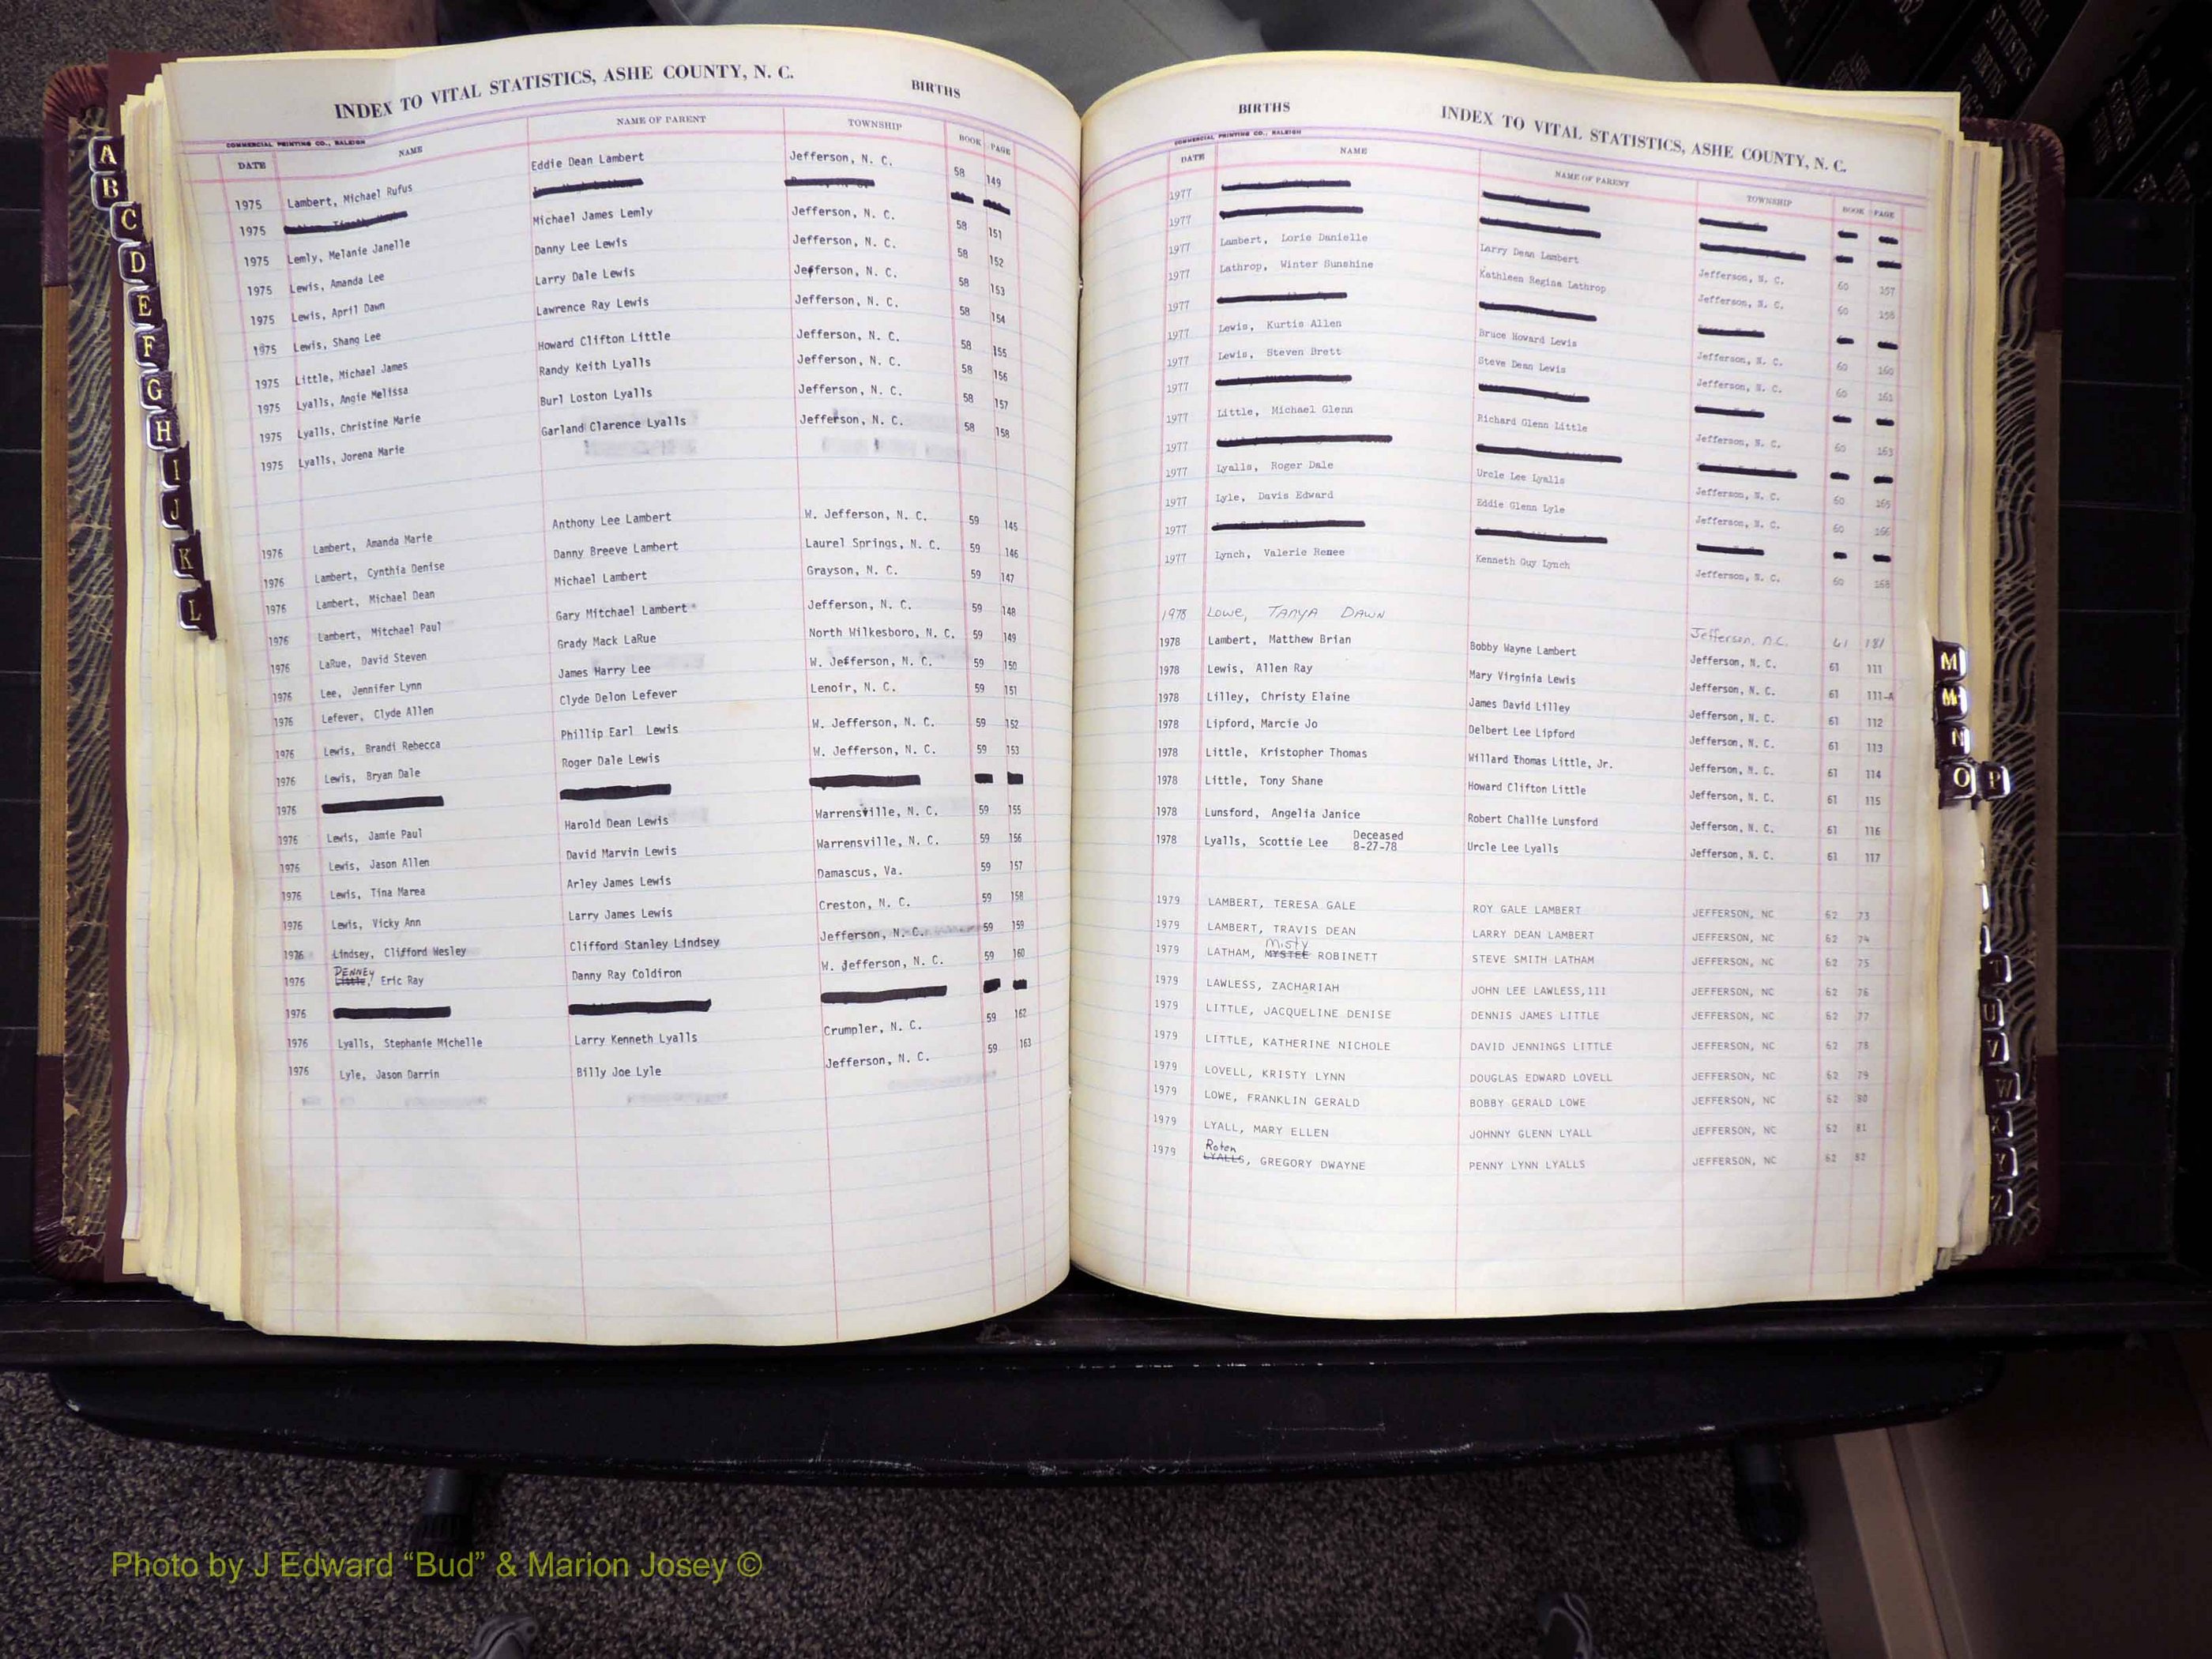 INDEX TO VITAL STATISTICS, ASHE COUNTY, N. C. BIRTHS
COMMERCIAL PRINTING CO., RALEIGH
DATE NAME NAME OF PARENT TOWNSHIP BOOK PAGE
1975 Lambert, Michael Rufus Eddie Dean Lambert Jefferson, N. C. 58 149
1975
1975 Lemly, Melanie Janelle Michael James Lemly Jefferson, N. C. 58 151
1975 Lewis, Amanda Lee Danny Lee Lewis Jefferson, N. C. 58 152
1975 Lewis, April Dawn Larry Dale Lewis Jefferson, N. C. 58 153
1975 Lewis, Shang Lee Lawrence Ray Lewis Jefferson, N. C. 58 154
1975 Little, Michael James Howard Clifton Little Jefferson, N. C. 58 155
1975 Lyalls, Angie Melissa Randy Keith Lyalls Jefferson, N. C. 58 156
1975 Lyalls, Christine Marie Burl Loston Lyalls Jefferson, N. C. 58 157
1975 Lyalls, Jorena Marie Garland Clarence Lyalls Jefferson, N. C. 58 158
1976 Lambert, Amanda Marie Anthony Lee Lambert W. Jefferson, N. C. 59 145
1976 Lambert, Cynthia Denise Danny Breeve Lambert Laurel Springs, N. C. 59 146
1976 Lambert, Michael Dean Michael Lambert Grayson, N. C. 59 147
1976 Lambert, Mitchael Paul Gary Mitchael Lambert Jefferson, N. C. 59 148
1976 LaRue, David Steven Grady Mack LaRue North Wilkesboro, N. C. 59 149
1976 Lee, Jennifer Lynn James Harry Lee W. Jefferson, N. C. 59 150
1976 Lefever, Clyde Allen Clyde Delon Lefever Lenoir, N. C. 59 151
1976 Lewis, Brandi Rebecca Phillip Earl Lewis W. Jefferson, N. C. 59 152
1976 Lewis, Bryan Dale Roger Dale Lewis W. Jefferson, N. C. 59 153
1976
1976 Lewis, Jamie Paul Harold Dean Lewis Warrensville, N. C. 59 155
1976 Lewis, Jason Allen David Marvin Lewis Warrensville, N. C. 59 156
1976 Lewis, Tina Marea Arley James Lewis Damascus, Va. 59 157
1976 Lewis, Vicky Ann Larry James Lewis Creston, N. C. 59 158
1976 Lindsey, Clifford Wesley Clifford Stanley Lindsey Jefferson, N. C. 59 159
PENNEY
1976 Little, Eric Ray Danny Ray Coldiron W. Jefferson, N. C. 59 160
1976
1976 Lyalls, Stephanie Michelle Larry Kenneth Lyalls Crumpler, N. C. 59 162
1976 Lyle, Jason Darrin Billy Joe Lyle Jefferson, N. C. 59 163
BIRTHS INDEX TO VITAL STATISTICS, ASHE COUNTY, N. C.
COMMERCIAL PRINTING CO., RALEIGH
DATE NAME NAME OF PARENT TOWNSHIP BOOK PAGE
1977
1977
1977 Lambert, Lorie Danielle Larry Dean Lambert Jefferson, N. C. 60 157
1977 Lathrop, Winter Sunshine Kathleen Regina Lathrop Jefferson, N. C. 60 158
1977
1977 Lewis, Kurtis Allen Bruce Howard Lewis Jefferson, N. C. 60 160
1977 Lewis, Steven Brett Steve Dean Lewis Jefferson, N. C. 60 161
1977
1977 Little, Michael Glenn Richard Glenn Little Jefferson, N. C. 60 163
1977
1977 Lyalls, Roger Dale Urcle Lee Lyalls Jefferson, N. C. 60 165
1977 Lyle, Davis Edward Eddie Glenn Lyle Jefferson, N. C. 60 166
1977
1977 Lynch, Valerie Renee Kenneth Guy Lynch Jefferson, N. C. 60 168
1978 Lowe, TANYA DAWN Jefferson, n.C. 61 181
1978 Lambert, Matthew Brian Bobby Wayne Lambert Jefferson, N. C. 61 111
1978 Lewis, Allen Ray Mary Virginia Lewis Jefferson, N. C. 61 111-A
1978 Lilley, Christy Elaine James David Lilley Jefferson, N. C. 61 112
1978 Lipford, Marcie Jo Delbert Lee Lipford Jefferson, N. C. 61 113
1978 Little, Kristopher Thomas Willard Thomas Little, Jr. Jefferson, N. C. 61 114
1978 Little, Tony Shane Howard Clifton Little Jefferson, N. C. 61 115
1978 Lunsford, Angelia Janice Robert Challie Lunsford Jefferson, N. C. 61 116
Deceased
1978 Lyalls, Scottie Lee 8-27-78 Urcle Lee Lyalls Jefferson, N. C. 61 117
1979 LAMBERT, TERESA GALE ROY GALE LAMBERT JEFFERSON, NC 62 73
1979 LAMBERT, TRAVIS DEAN LARRY DEAN LAMBERT JEFFERSON, NC 62 74
Misty
1979 LATHAM, MYSTEE ROBINETT STEVE SMITH LATHAM JEFFERSON, NC 62 75
1979 LAWLESS, ZACHARIAH JOHN LEE LAWLESS,111 JEFFERSON, NC 62 76
1979 LITTLE, JACQUELINE DENISE DENNIS JAMES LITTLE JEFFERSON, NC 62 77
1979 LITTLE, KATHERINE NICHOLE DAVID JENNINGS LITTLE JEFFERSON, NC 62 78
1979 LOVELL, KRISTY LYNN DOUGLAS EDWARD LOVELL JEFFERSON, NC 62 79
1979 LOWE, FRANKLIN GERALD BOBBY GERALD LOWE JEFFERSON, NC 62 80
1979 LYALL, MARY ELLEN JOHNNY GLENN LYALL JEFFERSON, NC 62 81
Roten
1979 LYALLS, GREGORY DWAYNE PENNY LYNN LYALLS JEFFERSON, NC 62 82
A
B
C
D
E
F
G
H
I
J
K
L
M
Mc
N
O P
T
U
V
W
Y
Z
VITAL STATISTICS BIRTHS
Photo by J Edward “Bud” & Marion Josey ©